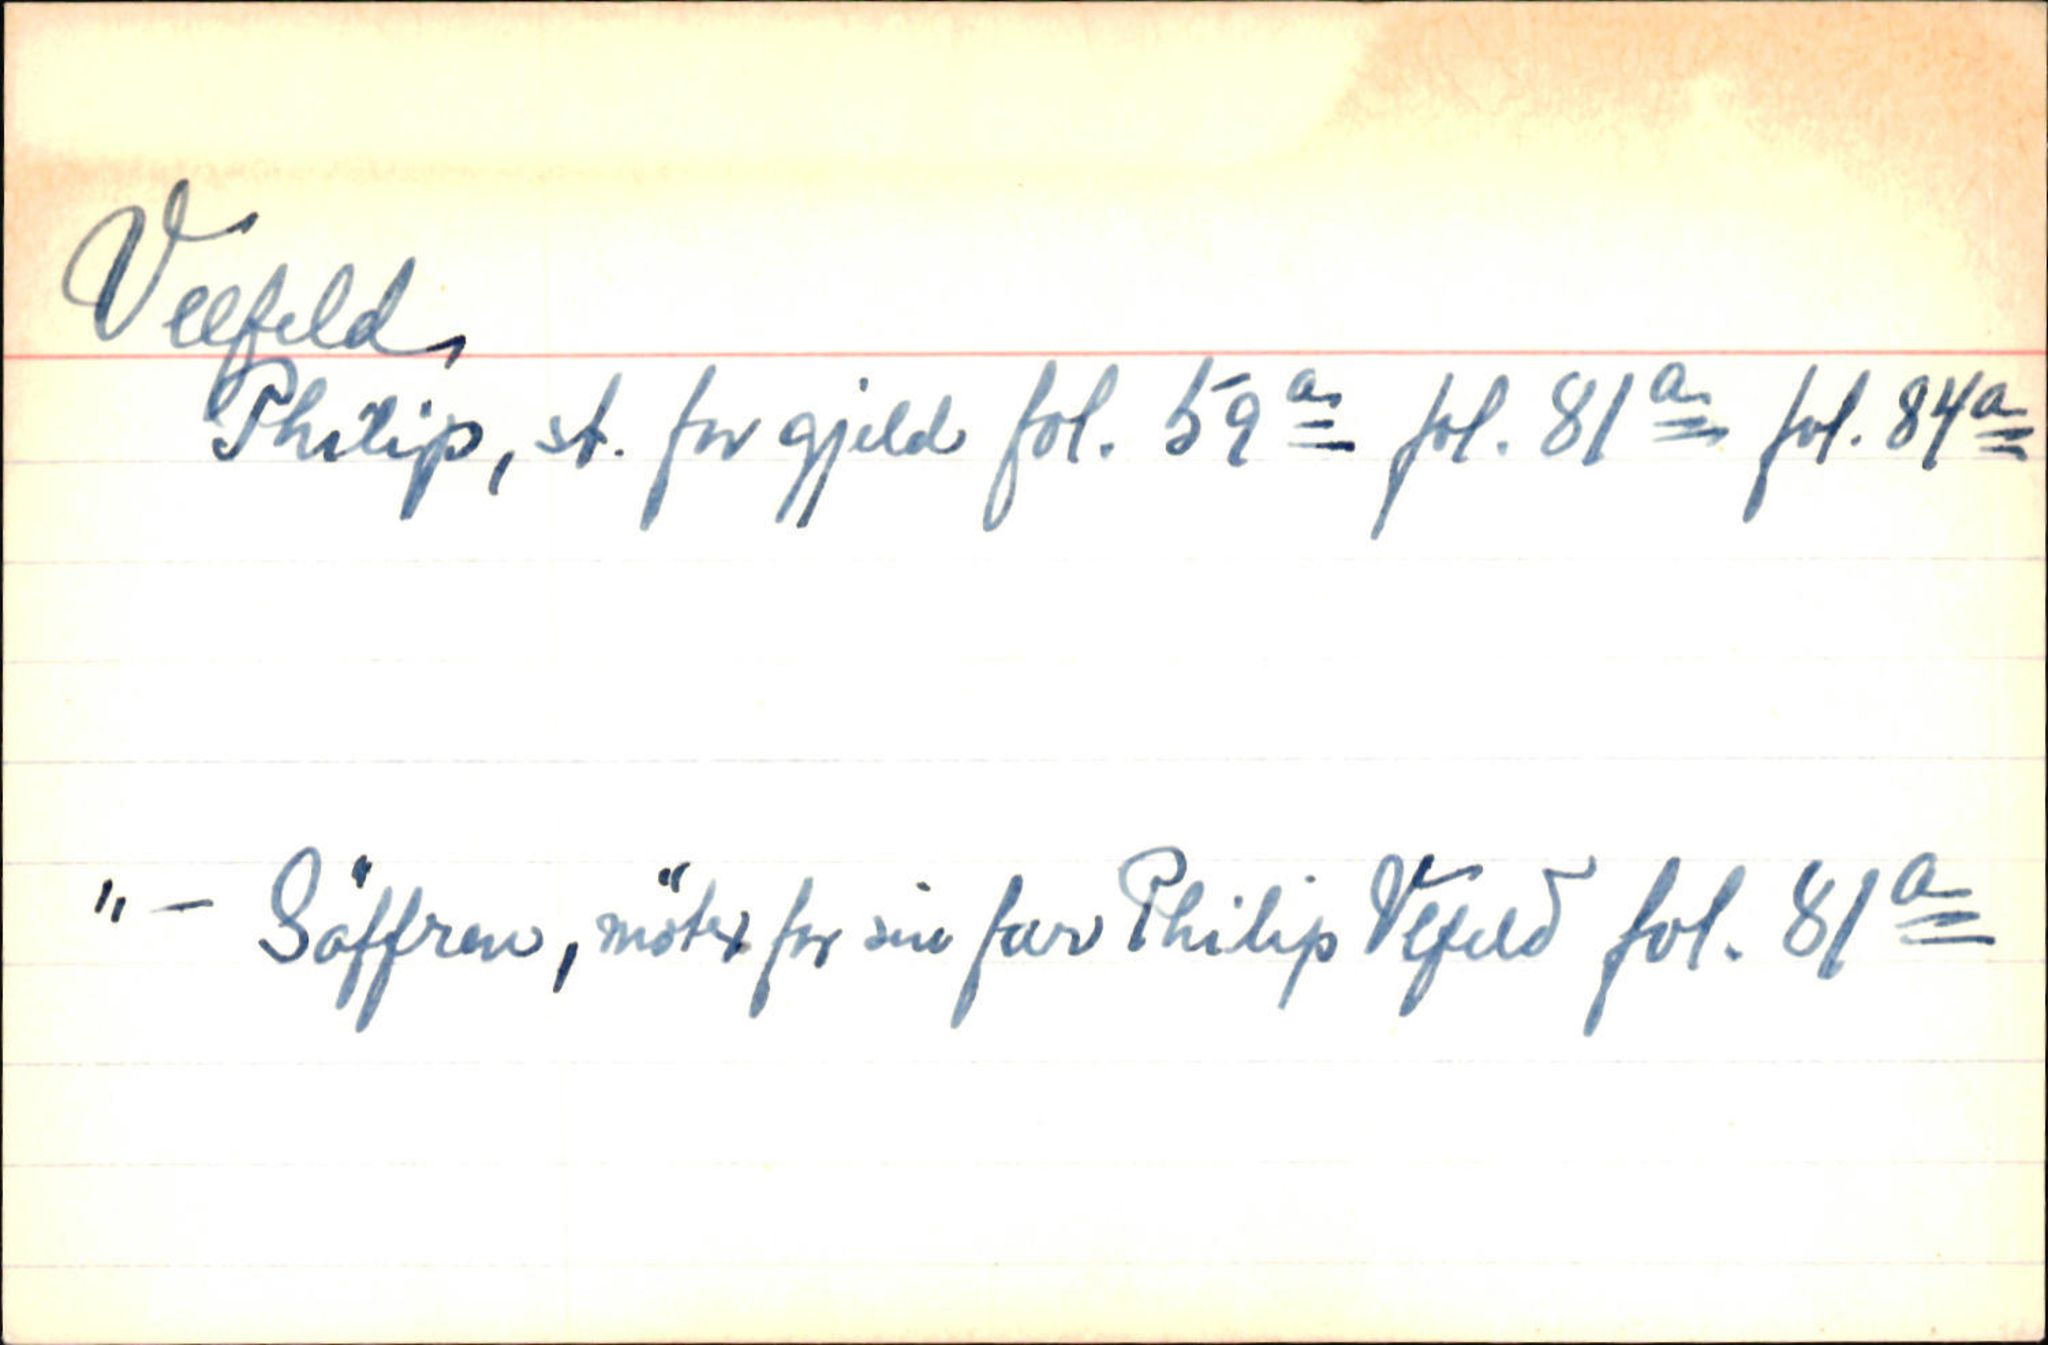 Veefeld,
Philip, st. for gjeld fol. 59a fol. 81a fol. 84a
"- Söffren, möter for sin far Philip Vefeld fol. 81a